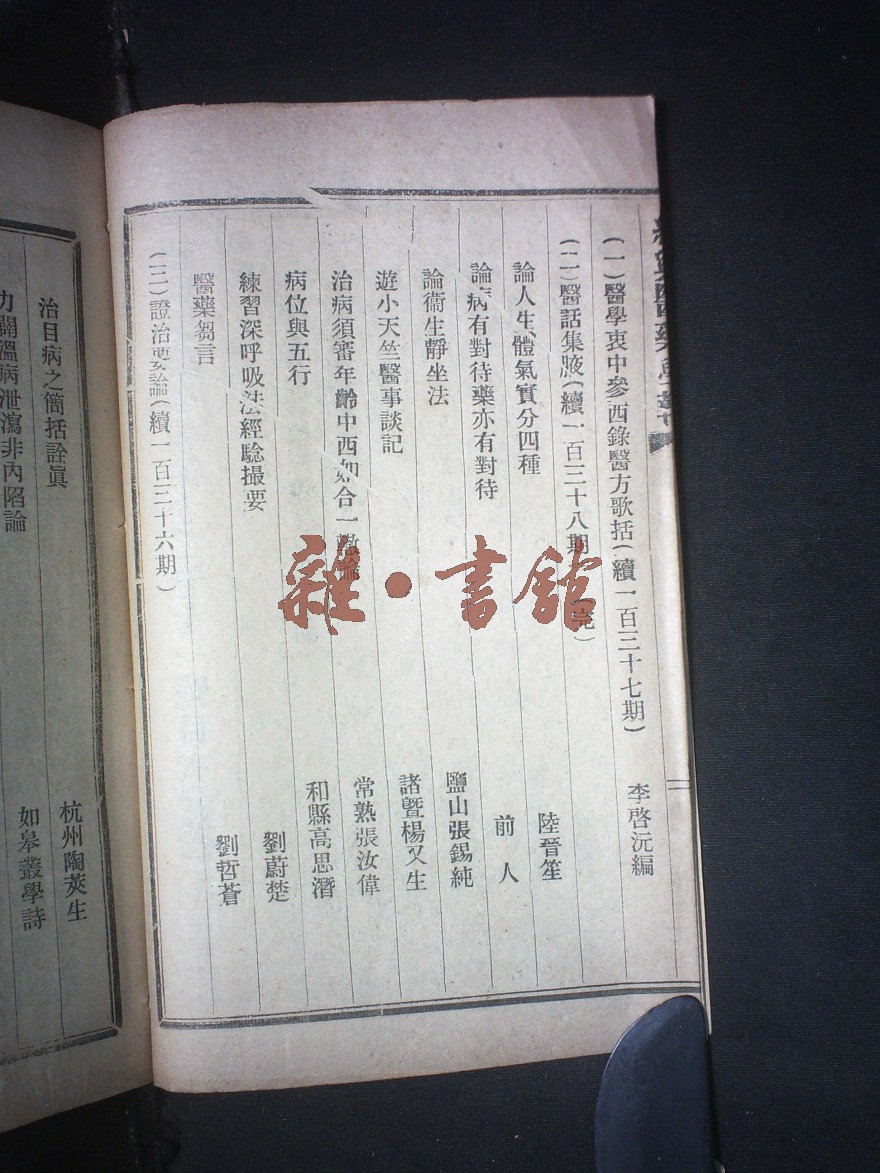 (一)醫學衷中參西錄醫方歌括(續一百三十七期) 李啓沅編
(二)醫話集腋(續一百三十八期 完)
論人生體氣實分四種 陸晉笙
論病有對待藥亦有對待 前人
論衞生靜坐法 鹽山張錫純
遊小天竺醫事談記 諸暨楊又生
治病須審年齡中西如合一 論 常熟張汝偉
病位與五行 和縣高思潛
練習深呼吸法經驗撮要 劉蔚楚
醫藥芻言 劉哲蒼
(三)證治要論(續一百三十六期)
治目病之簡括詮眞 杭州陶莢生
力闢溫病泄瀉非內陷論 如皋叢學詩
雜·書舘